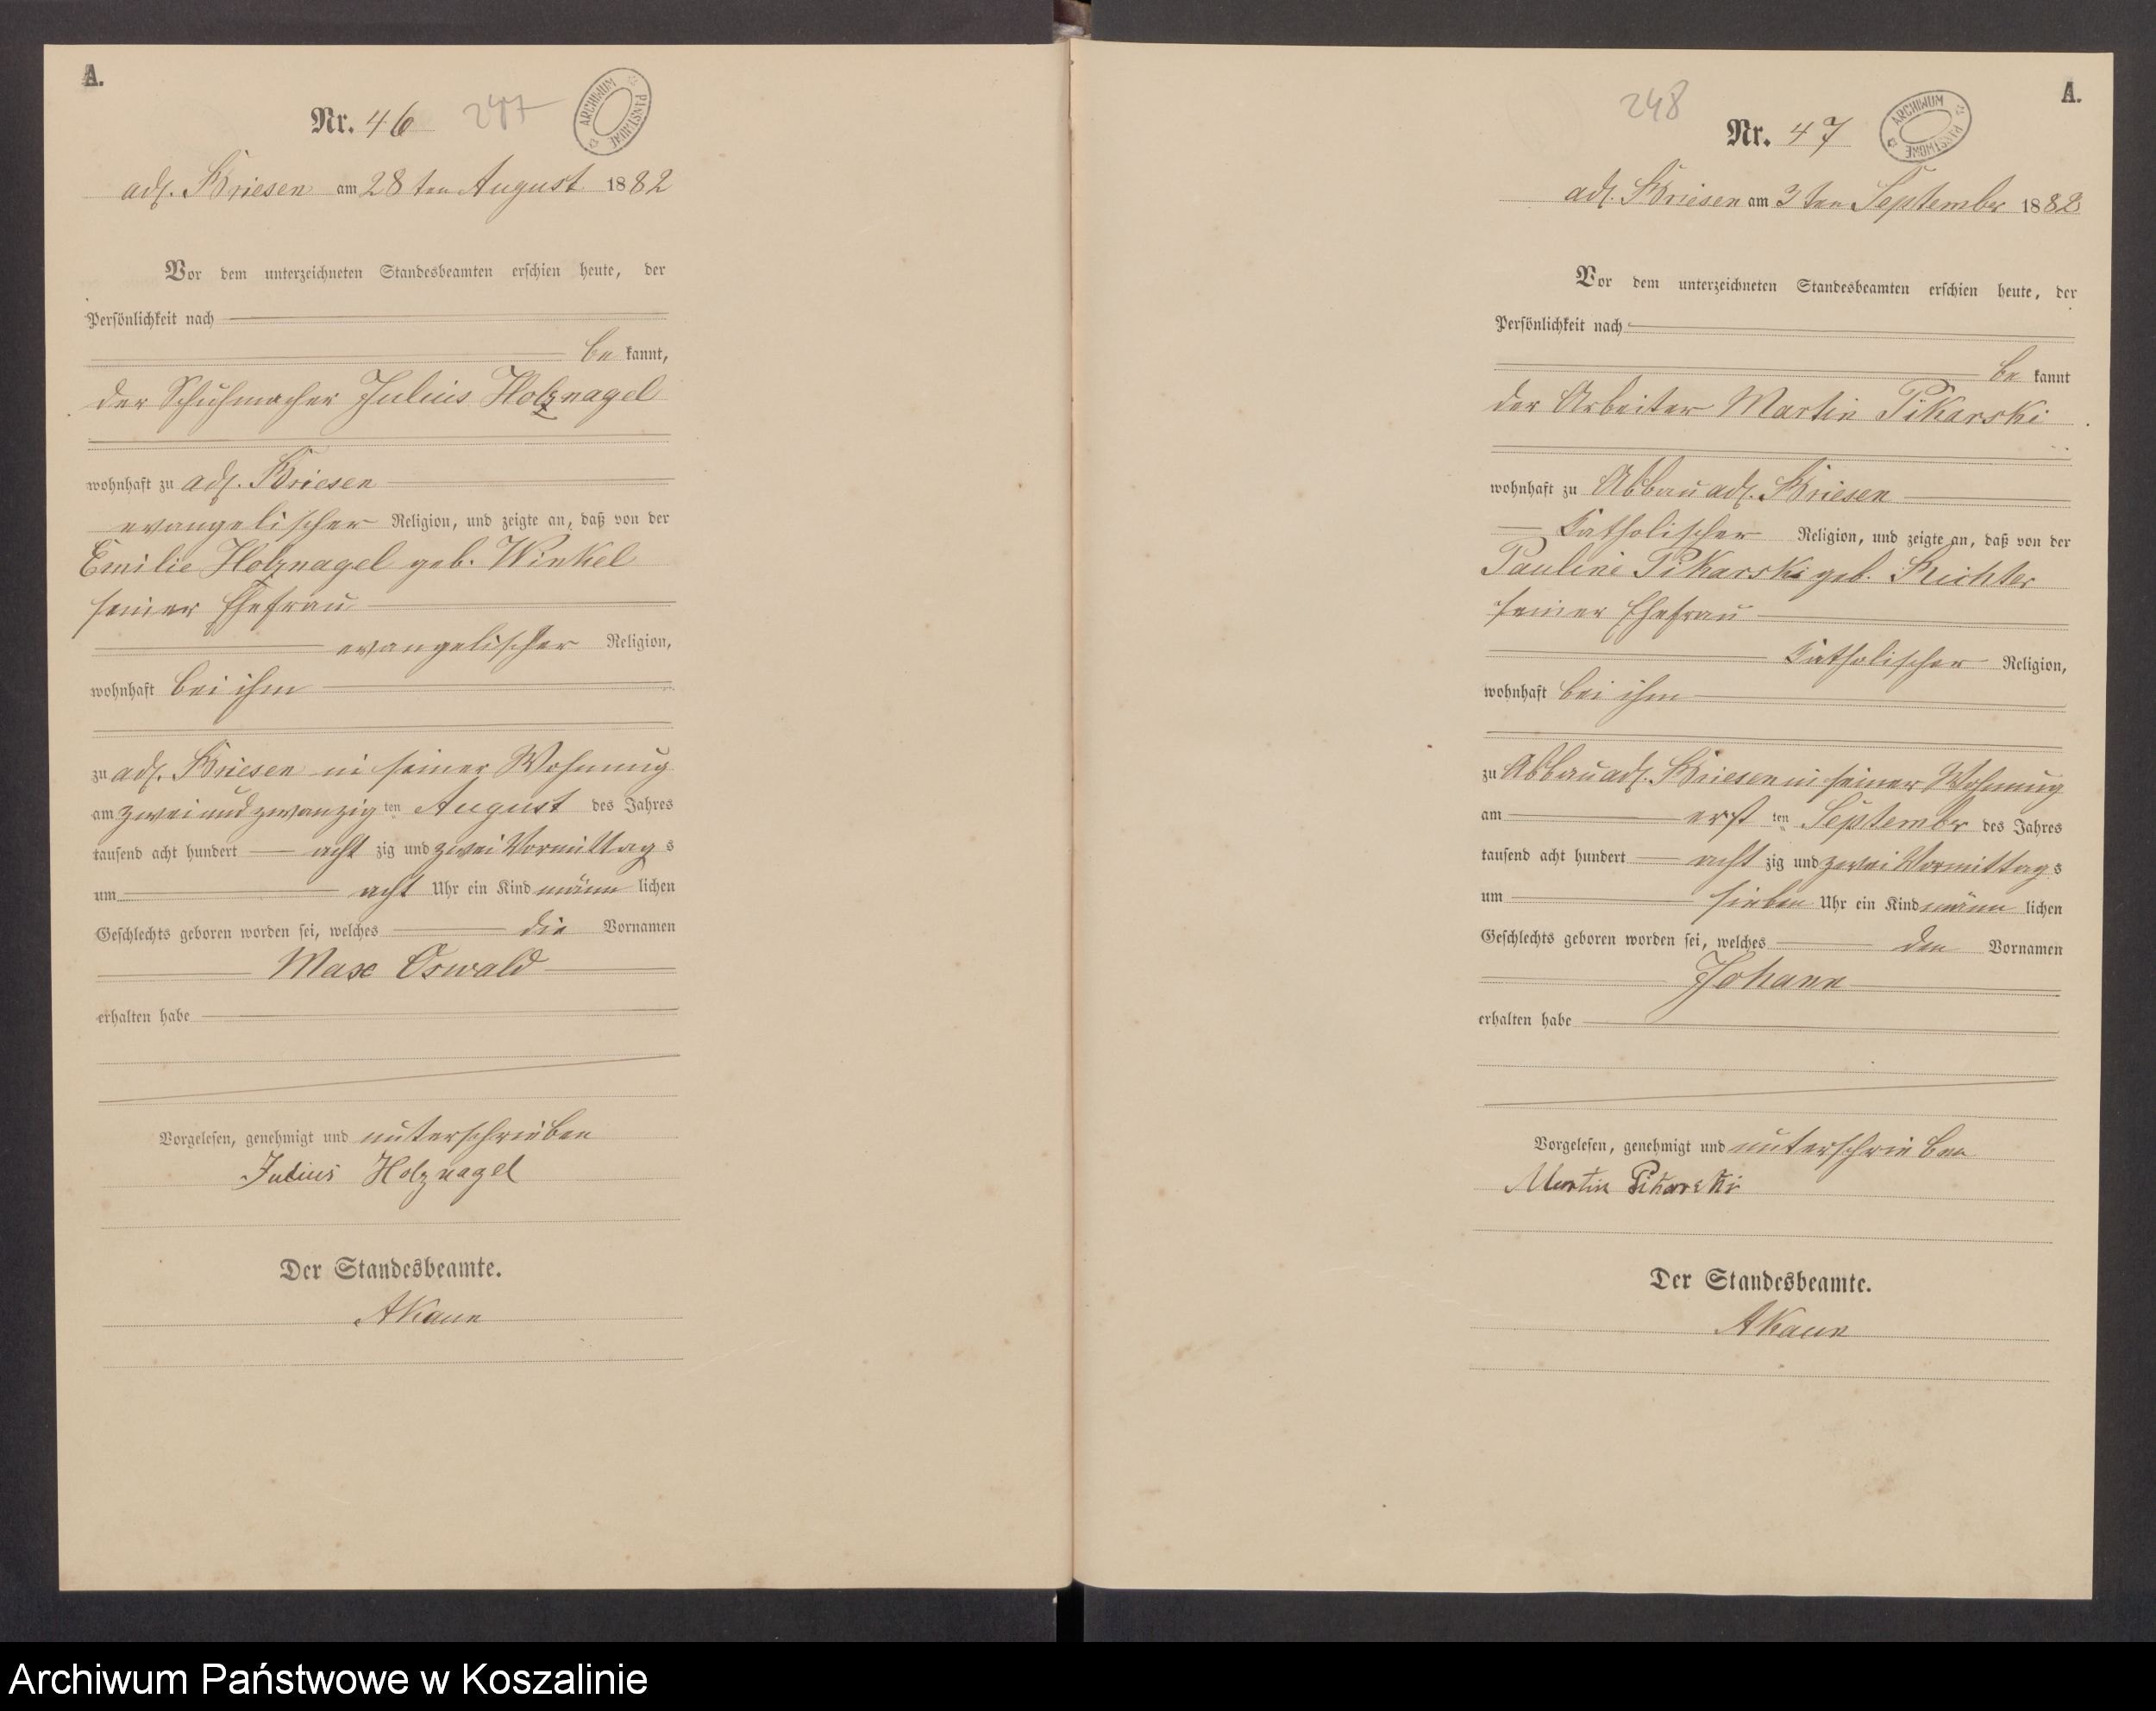 A.
Nr. 46
247
ARCHIWUM PAŃSTWOWE
adl. Briesen am 28ten August 1882
Vor dem unterzeichneten Standesbeamten erschien heute, der
Persönlichkeit nach
be kannt,
der Schuhmacher Julius Holznagel
wohnhaft zu adl. Briesen
evangelischer Religion, und zeigte an, daß von der
Emilie Holznagel geb. Winkel
seiner Ehefrau
evangelischer Religion,
wohnhaft bei ihm
zu adl. Briesen in seiner Wohnung
am zweiundzwanzig ten August des Jahres
tausend acht hundert acht zig und zwei Vormittag s
um acht Uhr ein Kind männ lichen
Geschlechts geboren worden sei, welches die Vornamen
Max Oswald
erhalten habe
Vorgelesen, genehmigt und unterschrieben
Julius Holznagel
Der Standesbeamte.
AKaun
A.
248
Nr. 47
ARCHIWUM PAŃSTWOWE
adl. Briesen am 3ten September 1882
Vor dem unterzeichneten Standesbeamten erschien heute, der
Persönlichkeit nach
be kannt
der Arbeiter Martin Pikarski
wohnhaft zu Abbau adl. Briesen
katholischer Religion, und zeigte an, daß von der
Pauline Pikarski geb. Richter
seiner Ehefrau
katholischer Religion,
wohnhaft bei ihm
zu Abbau adl. Briesen in seiner Wohnung
am erst ten September des Jahres
tausend acht hundert acht zig und zwei Vormittag s
um sieben Uhr ein Kind männ lichen
Geschlechts geboren worden sei, welches den Vornamen
Johann
erhalten habe
Vorgelesen, genehmigt und unterschrieben
Martin Pikarski
Der Standesbeamte.
AKaun
Archiwum Państwowe w Koszalinie